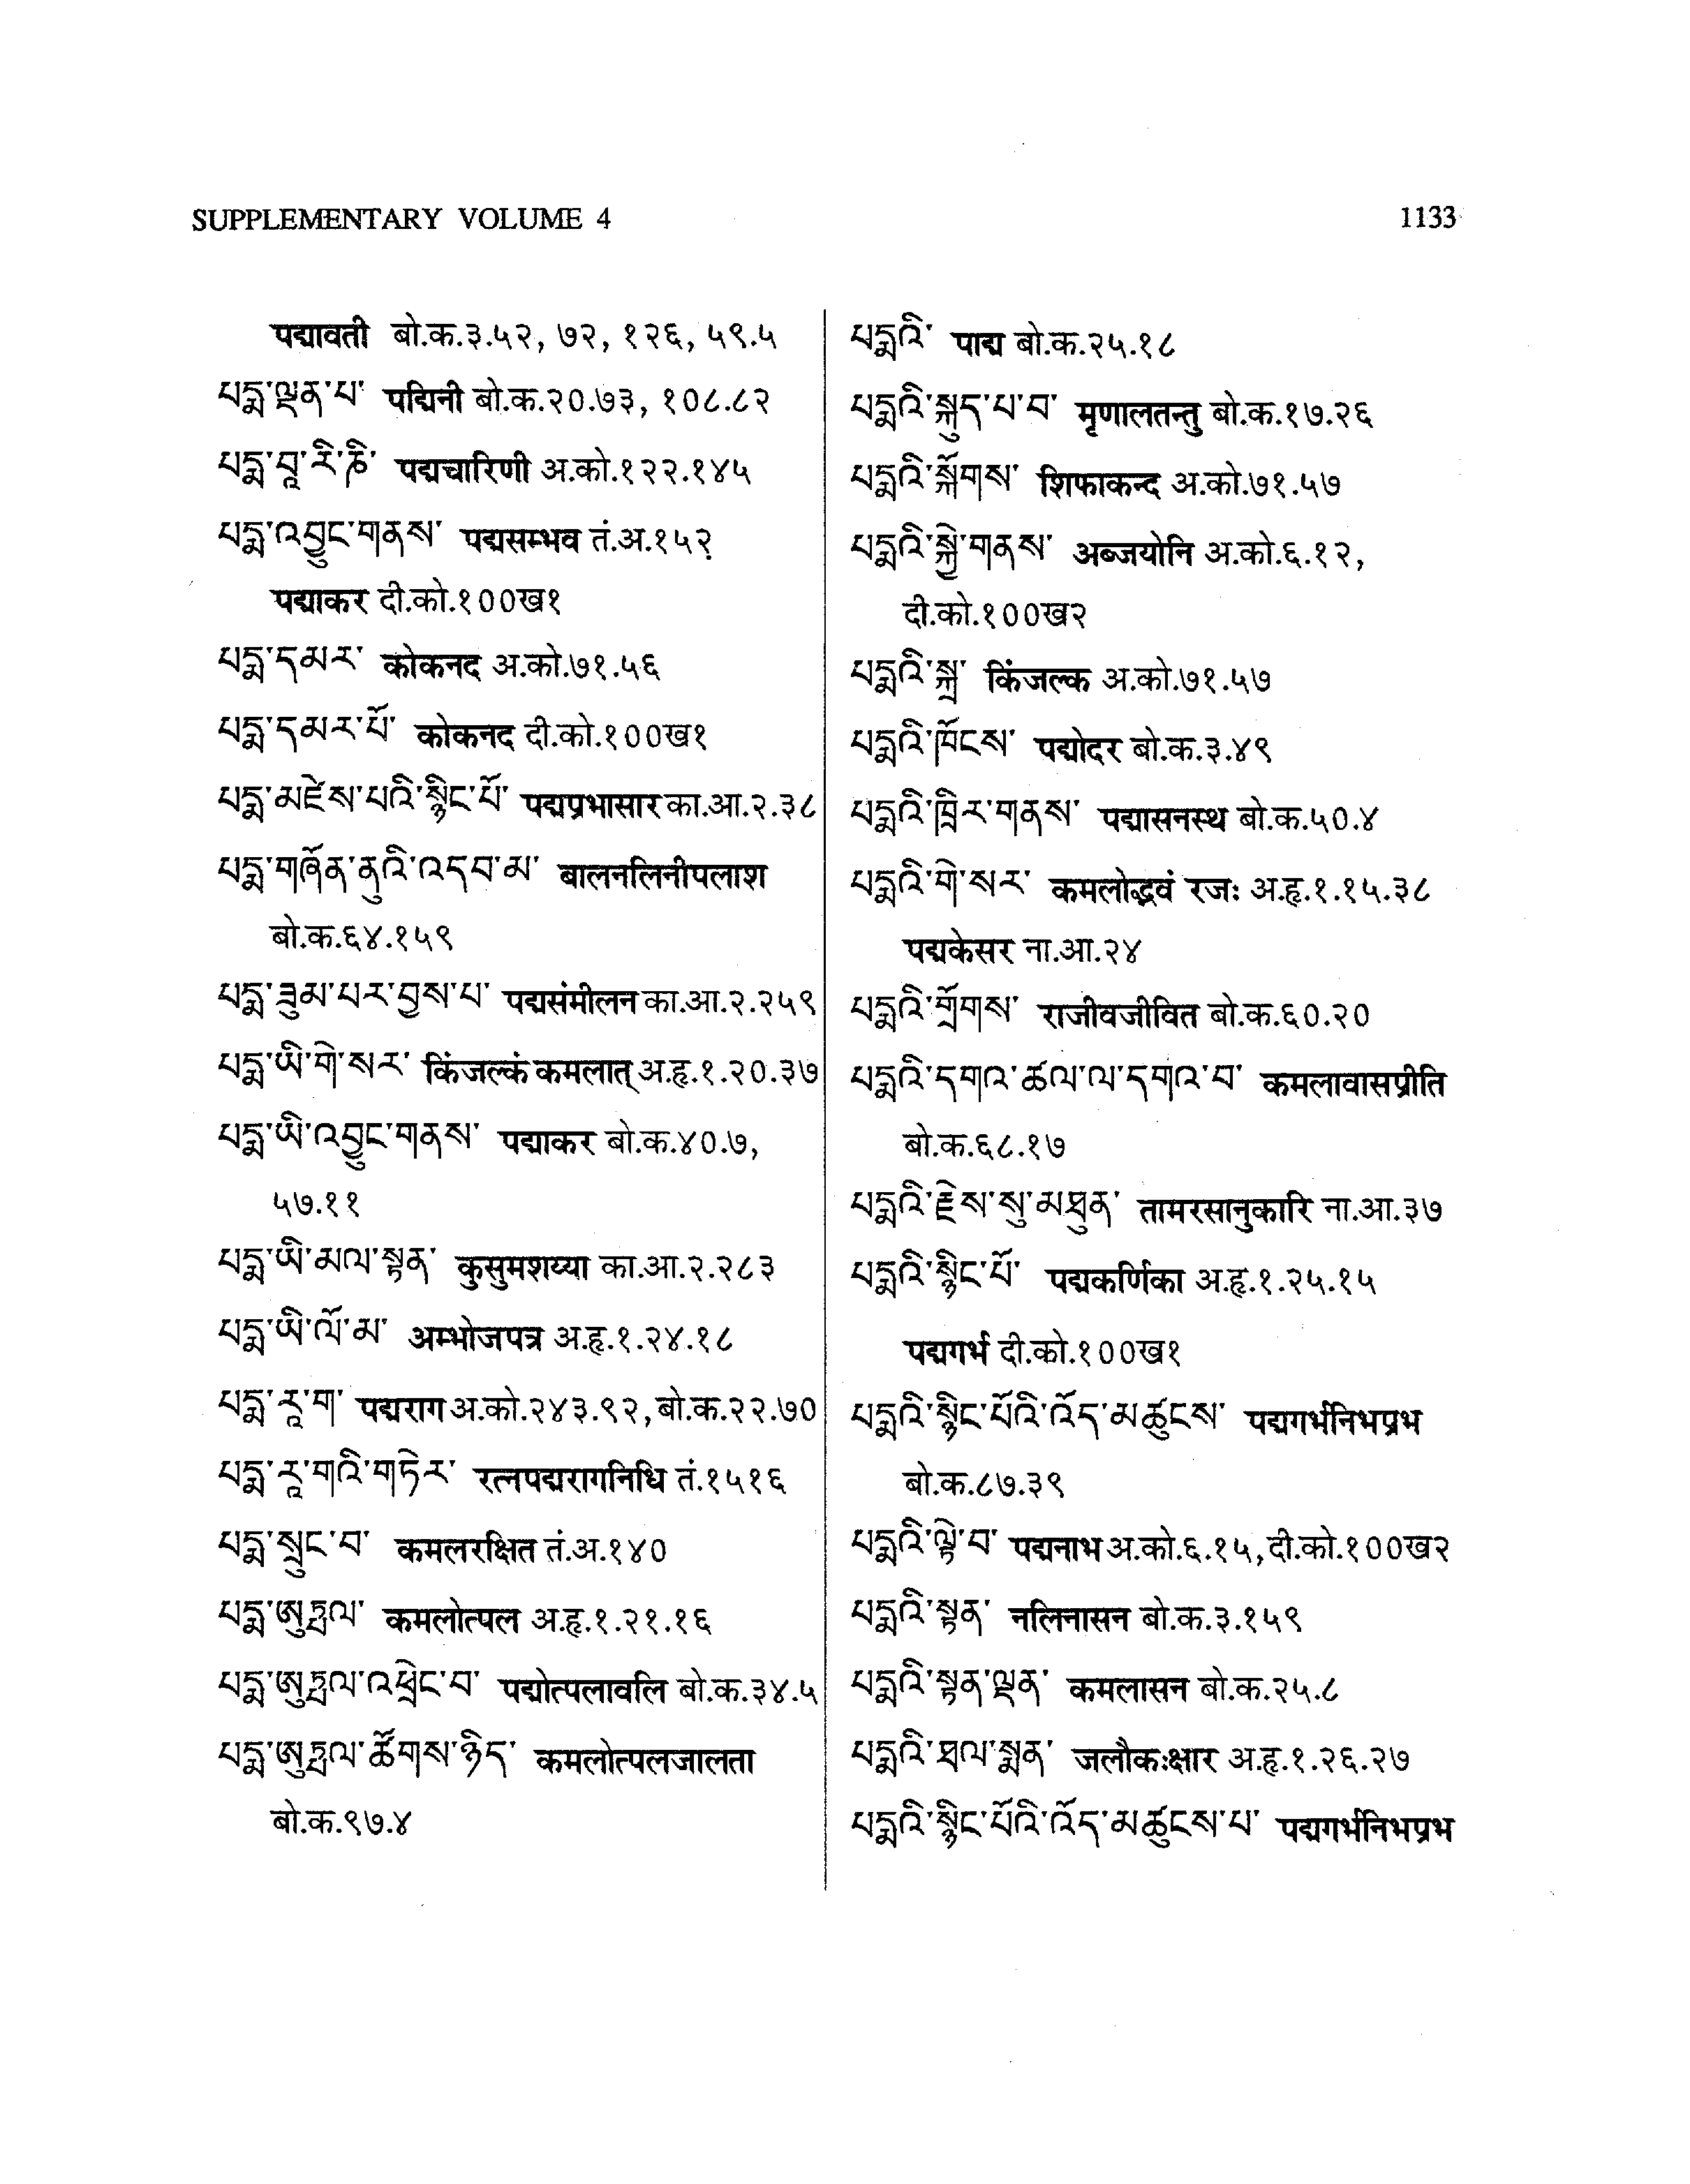 SUPPLEMENTARY VOLUME 4
1133
पद्मावती बो.क.३.५२, ७२, १२६, ५९.५
པདྨ་ལྡན་པ་ पद्मिनी बो.क.२०.७३, १०८.८२
པདྨ་བཱ་རི་ཎི་ पद्मचारिणी अ.को.१२२.१४५
པདྨ་འབྱུང་གནས་ पद्मसम्भव तं.अ.१५२
पद्माकर दी.को.१००ख१
པདྨ་དམར་ कोकनद अ.को.७१.५६
པདྨ་དམར་པོ་ कोकनद दी.को.१००ख१
པདྨ་མཛེས་པའི་སྙིང་པོ་ पद्मप्रभासार का.आ.२.३८
པདྨ་གཞོན་ནུའི་འདབ་མ་ बालनलिनीपलाश
बो.क.६४.१५९
པདྨ་ཟུམ་པར་བྱས་པ་ पद्मसंमीलन का.आ.२.२५९
པདྨ་ཡི་གེ་སར་ किंजल्कं कमलात् अ.हृ.१.२०.३७
པདྨ་ཡི་འབྱུང་གནས་ पद्माकर बो.क.४०.७,
५७.११
པདྨ་ཡི་མལ་སྟན་ कुसुमशय्या का.आ.२.२८३
པདྨ་ཡི་ལོ་མ་ अम्भोजपत्र अ.हृ.१.२४.१८
པདྨ་རཱ་ག་ पद्मराग अ.को.२४३.९२, बो.क.२२.७०
པདྨ་རཱ་གའི་གཏེར་ रत्नपद्मरागनिधि तं.१५१६
པདྨ་སྲུང་བ་ कमलरक्षित तं.अ.१४०
པདྨ་ཨུཏྤལ་ कमलोत्पल अ.हृ.१.२१.१६
པདྨ་ཨུཏྤལ་འཕྲེང་བ་ पद्मोत्पलावलि बो.क.३४.५
པདྨ་ཨུཏྤལ་ཚོགས་ཉིད་ कमलोत्पलजालता
बो.क.९७.४
པདྨའི་ पाद्म बो.क.२५.१८
པདྨའི་སྐུད་པ་བ་ मृणालतन्तु बो.क.१७.२६
པདྨའི་སྐོགས་ शिफाकन्द अ.को.७१.५७
པདྨའི་སྐྱེ་གནས་ अब्जयोनि अ.को.६.१२,
दी.को.१००ख२
པདྨའི་སྐྲ་ किंजल्क अ.को.७१.५७
པདྨའི་ཁོངས་ पद्मोदर बो.क.३.४९
པདྨའི་ཁྲིར་གནས་ पद्मासनस्थ बो.क.५०.४
པདྨའི་གེ་སར་ कमलोद्भवं रजः अ.हृ.१.१५.३८
पद्मकेसर ना.आ.२४
པདྨའི་གྲོགས་ राजीवजीवित बो.क.६०.२०
པདྨའི་དགའ་ཚལ་ལ་དགའ་བ་ कमलावासप्रीति
बो.क.६८.१७
པདྨའི་རྗེས་སུ་མཐུན་ तामरसानुकारि ना.आ.३७
པདྨའི་སྙིང་པོ་ पद्मकर्णिका अ.हृ.१.२५.१५
पद्मगर्भ दी.को.१००ख१
པདྨའི་སྙིང་པོའི་འོད་མཚུངས་ पद्मगर्भनिभप्रभ
बो.क.८७.३९
པདྨའི་ལྟེ་བ་ पद्मनाभ अ.को.६.१५, दी.को.१००ख२
པདྨའི་སྟན་ नलिनासन बो.क.३.१५९
པདྨའི་སྟན་ལྡན་ कमलासन बो.क.२५.८
པདྨའི་ཐལ་སྨན་ जलौकःक्षार अ.हृ.१.२६.२७
པདྨའི་སྙིང་པོའི་འོད་མཚུངས་པ་ पद्मगर्भनिभप्रभ